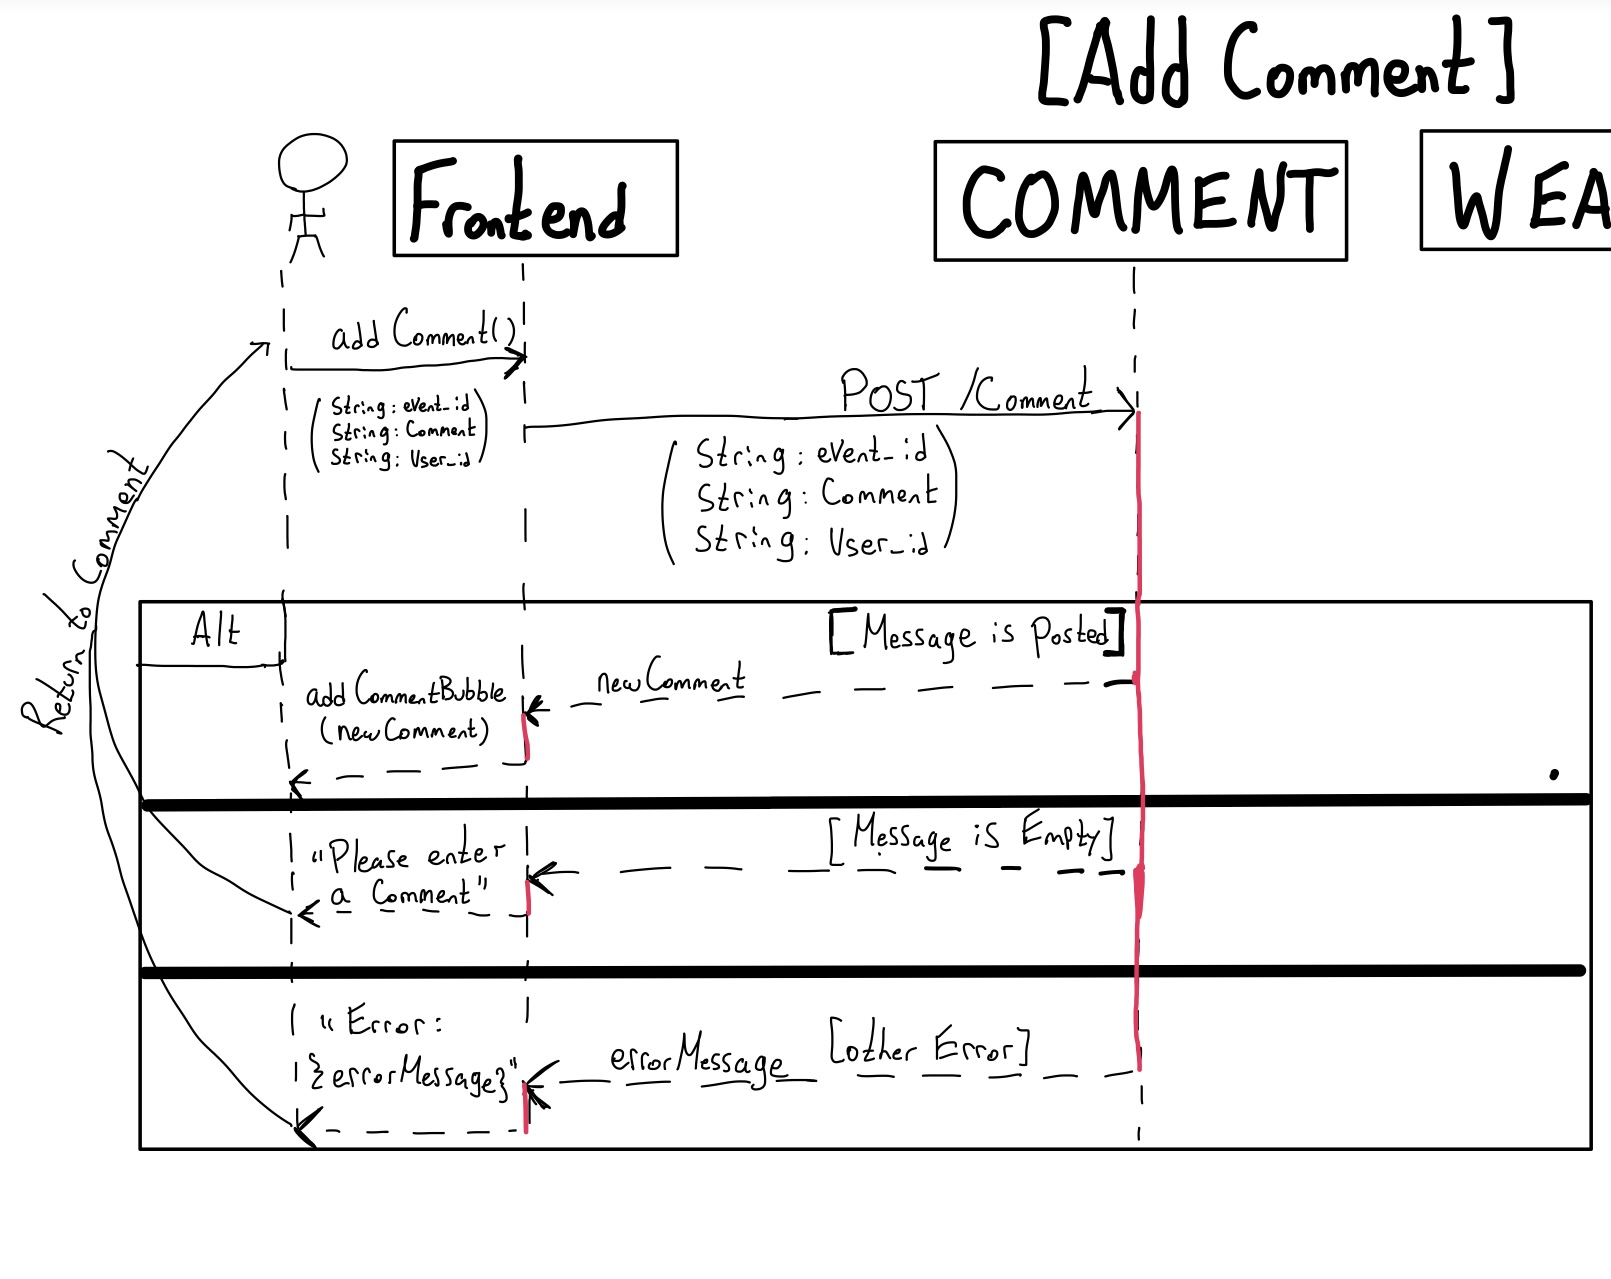 [Add Comment]
Frontend
COMMENT
WEA
add Comment()
(String: event_id
String: Comment
String: User_id)
POST /Comment
(String: event_id
String: Comment
String: User_id)
Return to Comment
Alt
[Message is Posted]
newComment
add CommentBubble
(newComment)
[Message is Empty]
"Please enter
a Comment"
[other Error]
errorMessage
"Error:
{errorMessage}"